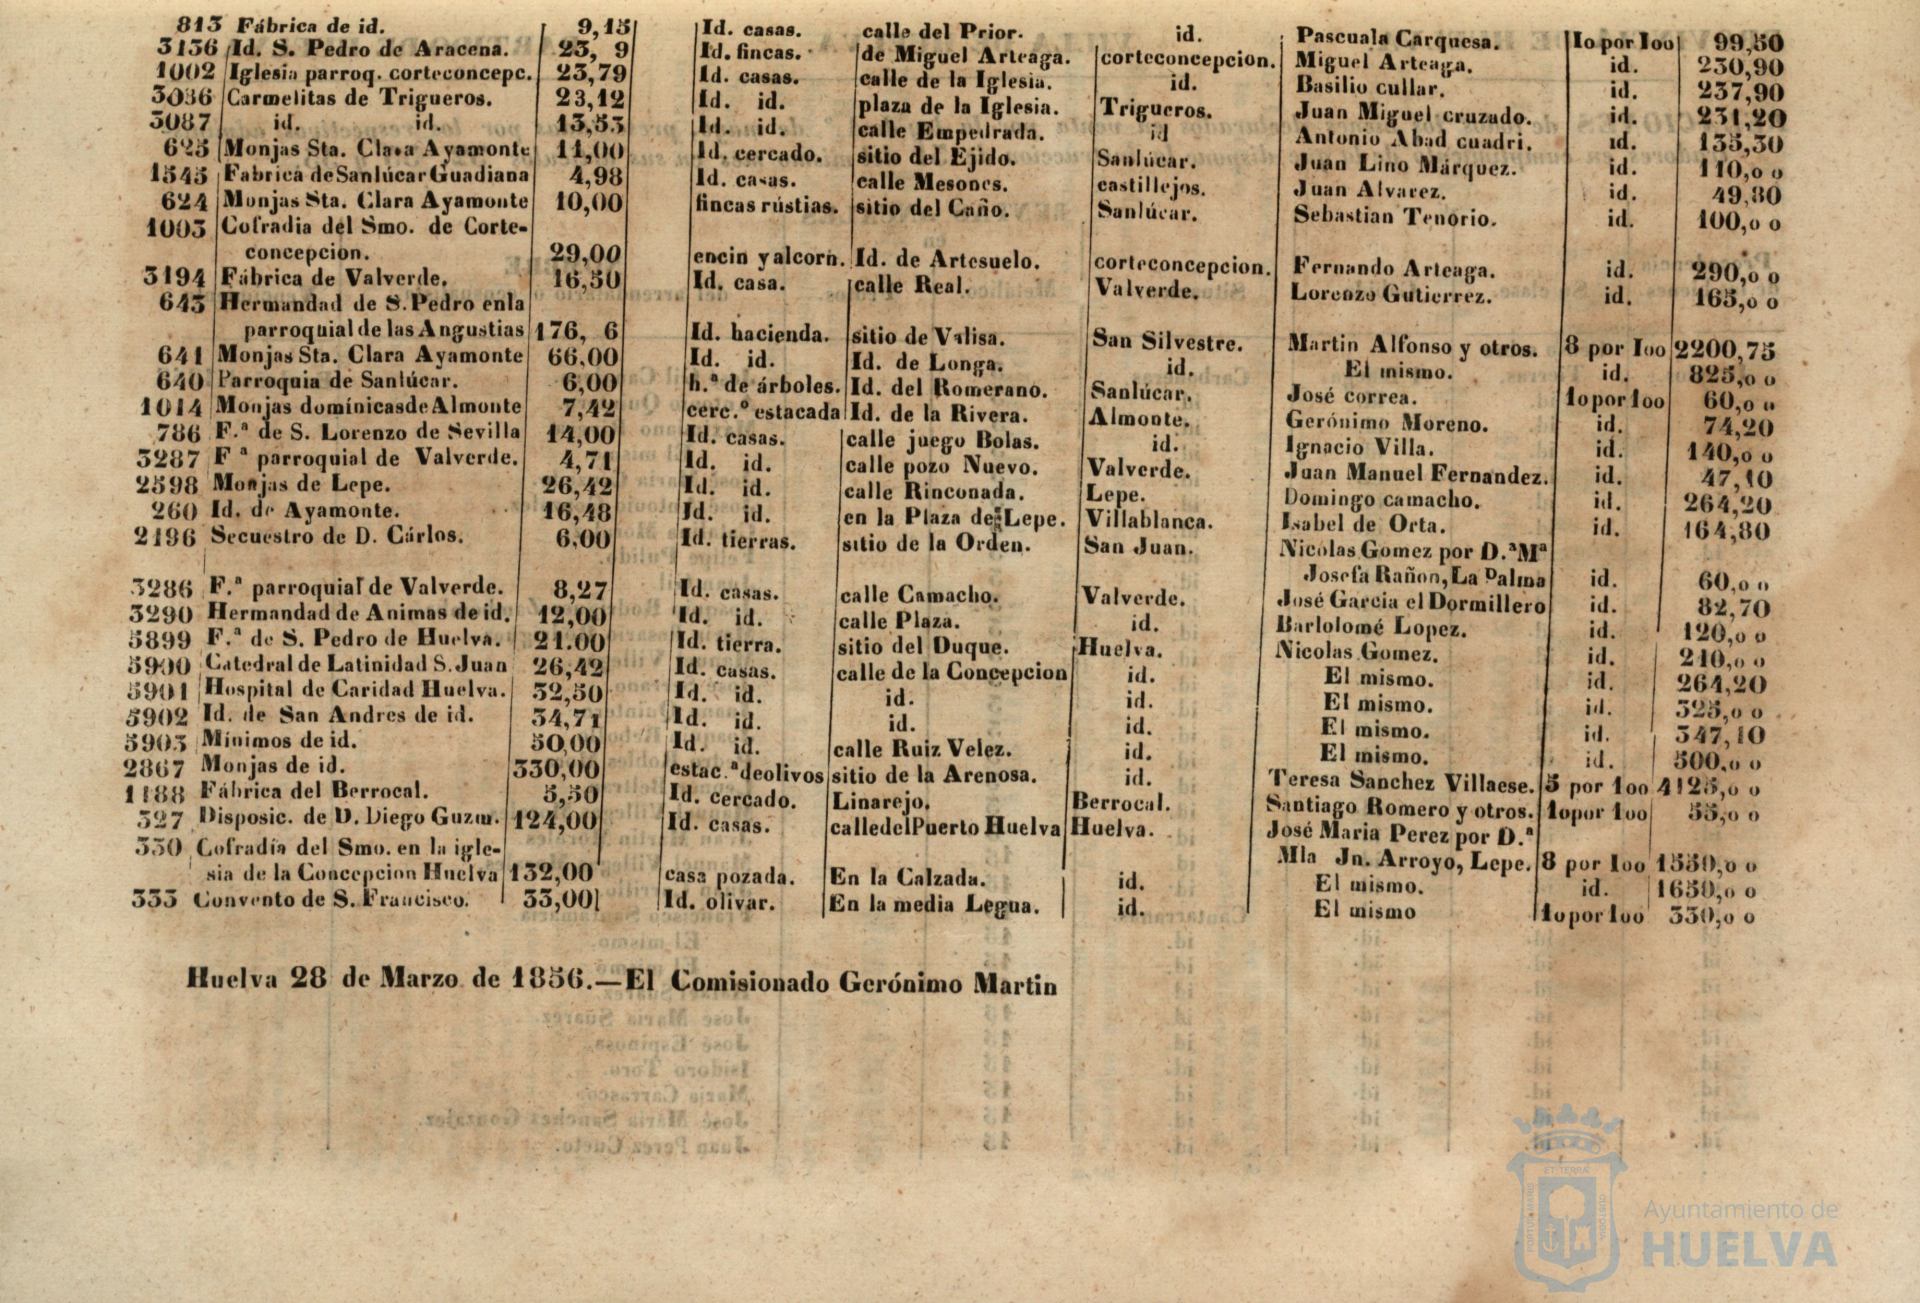 813 Fábrica de id. 9,15 Id. casas. calle del Prior. id. Pascuala Carquesa. 1o por 1oo 99,50
3136 Id. S. Pedro de Aracena. 23, 9 Id. fincas. de Miguel Arteaga. corteconcepcion. Miguel Arteaga. id. 230,90
1002 Iglesia parroq. corteconcepc. 23,79 Id. casas. calle de la Iglesia. id. Basilio cullar. id. 237,90
3036 Carmelitas de Trigueros. 23,12 Id. id. plaza de la Iglesia. Trigueros. Juan Miguel cruzado. id. 231,20
3087 id. id. 13,53 Id. id. calle Empedrada. id Antonio Abad cuadri. id. 135,30
625 Monjas Sta. Clara Ayamonte 11,00 Id. cercado. sitio del Ejido. Sanlúcar. Juan Lino Márquez. id. 110,o o
1545 Fabrica de Sanlúcar Guadiana 4,98 Id. casas. calle Mesones. castillejos. Juan Alvarez. id. 49,80
624 Monjas Sta. Clara Ayamonte 10,00 fincas rústias. sitio del Caño. Sanlúcar. Sebastian Tenorio. id. 100,o o
1003 Cofradia del Smo. de Corte-
concepcion. 29,00 encin y alcorn. Id. de Artesuelo. corteconcepcion. Fernando Arteaga. id. 290,o o
3194 Fábrica de Valverde. 16,50 Id. casa. calle Real. Valverde. Lorenzo Gutierrez. id. 165,o o
643 Hermandad de S. Pedro en la
parroquial de las Angustias 176, 6 Id. hacienda. sitio de Valisa. San Silvestre. Martin Alfonso y otros. 8 por 1oo 2200,75
641 Monjas Sta. Clara Ayamonte 66,00 Id. id. Id. de Longa. id. El mismo. id. 825,o o
640 Parroquia de Sanlúcar. 6,00 h.ª de árboles. Id. del Romerano. Sanlúcar. José correa. 1o por 1oo 60,o o
1014 Monjas domínicas de Almonte 7,42 cerc.º estacada Id. de la Rivera. Almonte. Gerónimo Moreno. id. 74,20
786 F.ª de S. Lorenzo de Sevilla 14,00 Id. casas. calle juego Bolas. id. Ignacio Villa. id. 140,o o
3287 F ª parroquial de Valverde. 4,71 Id. id. calle pozo Nuevo. Valverde. Juan Manuel Fernandez. id. 47,10
2598 Monjas de Lepe. 26,42 Id. id. calle Rinconada. Lepe. Domingo camacho. id. 264,20
260 Id. de Ayamonte. 16,48 Id. id. en la Plaza de Lepe. Villablanca. Isabel de Orta. id. 164,80
2196 Secuestro de D. Cárlos. 6,00 Id. tierras. sitio de la Orden. San Juan. Nicolas Gomez por D.ª Mª
Josefa Rañon, La Palma id. 60,o o
3286 F.ª parroquial de Valverde. 8,27 Id. casas. calle Camacho. Valverde. José Garcia el Dormillero id. 82,70
3290 Hermandad de Animas de id. 12,00 Id. id. calle Plaza. id. Barlolomé Lopez. id. 120,o o
5899 F.ª de S. Pedro de Huelva. 21.00 Id. tierra. sitio del Duque. Huelva. Nicolas Gomez. id. 210,o o
5900 Catedral de Latinidad S. Juan 26,42 Id. casas. calle de la Concepcion id. El mismo. id. 264,20
5901 Hospital de Caridad Huelva. 32,50 Id. id. id. id. El mismo. id. 325,o o
5902 Id. de San Andres de id. 34,71 Id. id. id. id. El mismo. id. 347,10
5903 Mínimos de id. 50,00 Id. id. calle Ruiz Velez. id. El mismo. id. 500,o o
2867 Monjas de id. 330,00 estac.ª de olivos sitio de la Arenosa. id. Teresa Sanchez Villaese. 5 por 1oo 4125,o o
1188 Fábrica del Berrocal. 5,50 Id. cercado. Linarejo. Berrocal. Santiago Romero y otros. 1o por 1oo 55,o o
327 Disposic. de D. Diego Guzm. 124,00 Id. casas. calle del Puerto Huelva Huelva. José Maria Perez por D.ª
Mla Jn. Arroyo, Lepe. 8 por 1oo 1550,o o
330 Cofradía del Smo. en la igle-
sia de la Concepcion Huelva 132,00 casa pozada. En la Calzada. id. El mismo. id. 1650,o o
333 Convento de S. Francisco. 33,00 Id. olivar. En la media Legua. id. El mismo 1o por 1oo 330,o o
Huelva 28 de Marzo de 1856.—El Comisionado Gerónimo Martin
Ayuntamiento de
HUELVA